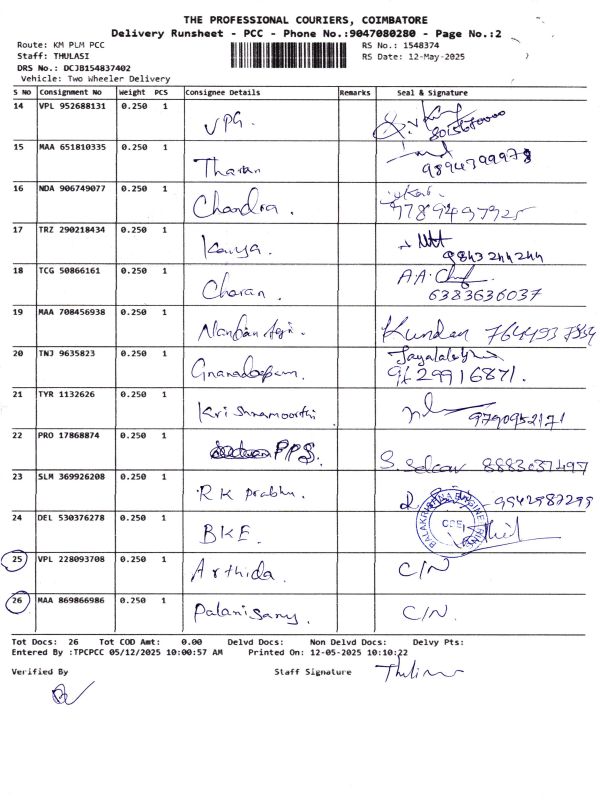 THE PROFESSIONAL COURIERS, COIMBATORE
Delivery Runsheet - PCC - Phone No.:9047080280 - Page No.:2
Route: KM PLM PCC RS No.: 1548374
Staff: THULASI RS Date: 12-May-2025
DRS No.: DCJB154837402
Vehicle: Two Wheeler Delivery
S No Consignment No Weight PCS Consignee Details Remarks Seal & Signature
14 VPL 952688131 0.250 1 VPG.
15 MAA 651810335 0.250 1 Tharan 9894399978
16 NDA 906749077 0.250 1 Chandra. 9789497925
17 TRZ 290218434 0.250 1 Kavya. 9843244244
18 TCG 50866161 0.250 1 Charan. A.A. 6383636037
19 MAA 708456938 0.250 1 Kundan
20 TNJ 9635823 0.250 1 29916871.
21 TYR 1132626 0.250 1 Krishnamoorthi 9790952171
22 PRO 17868874 0.250 1 PPS. S. Selvar 8883037497
23 SLM 369926208 0.250 1 R K Prabhu. 9942987299
24 DEL 530376278 0.250 1 BKE.
25 VPL 228093708 0.250 1 Arthida. C/N
26 MAA 869866986 0.250 1 Palanisamy. C/N.
Tot Docs: 26 Tot COD Amt: 0.00 Delvd Docs: Non Delvd Docs: Delvy Pts:
Entered By :TPCPCC 05/12/2025 10:00:57 AM Printed On: 12-05-2025 10:10:22
Verified By Staff Signature